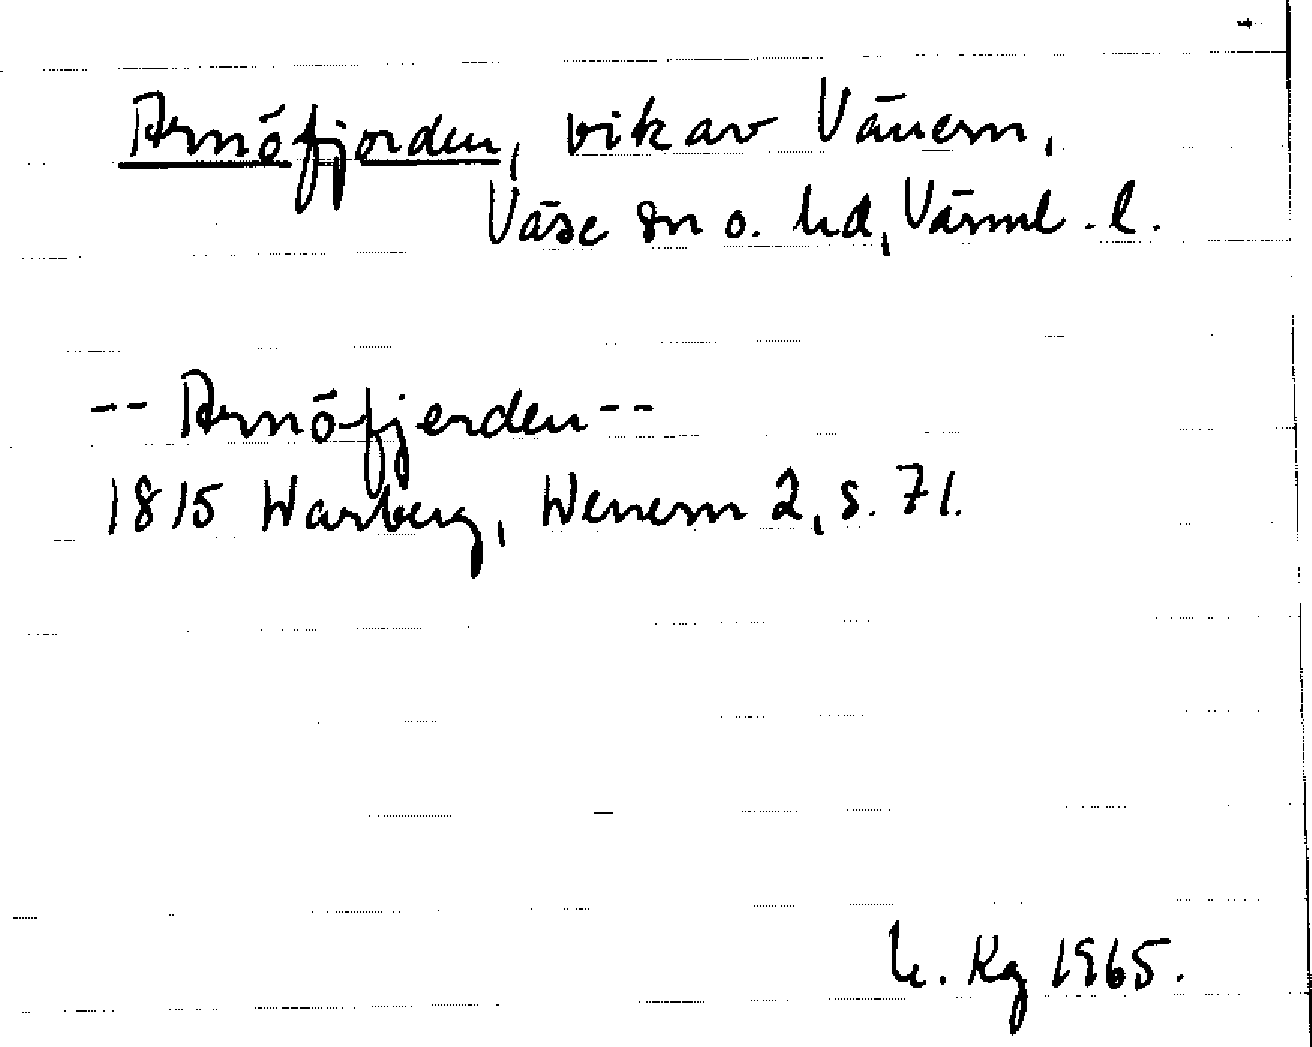 Arnöfjorden, vik av Vänern,
Väse sn o. hd, Värml. l.
-- Arnöfjerden --
1815 Warberg, Wenern 2, s. 71.
h. Kg 1965.